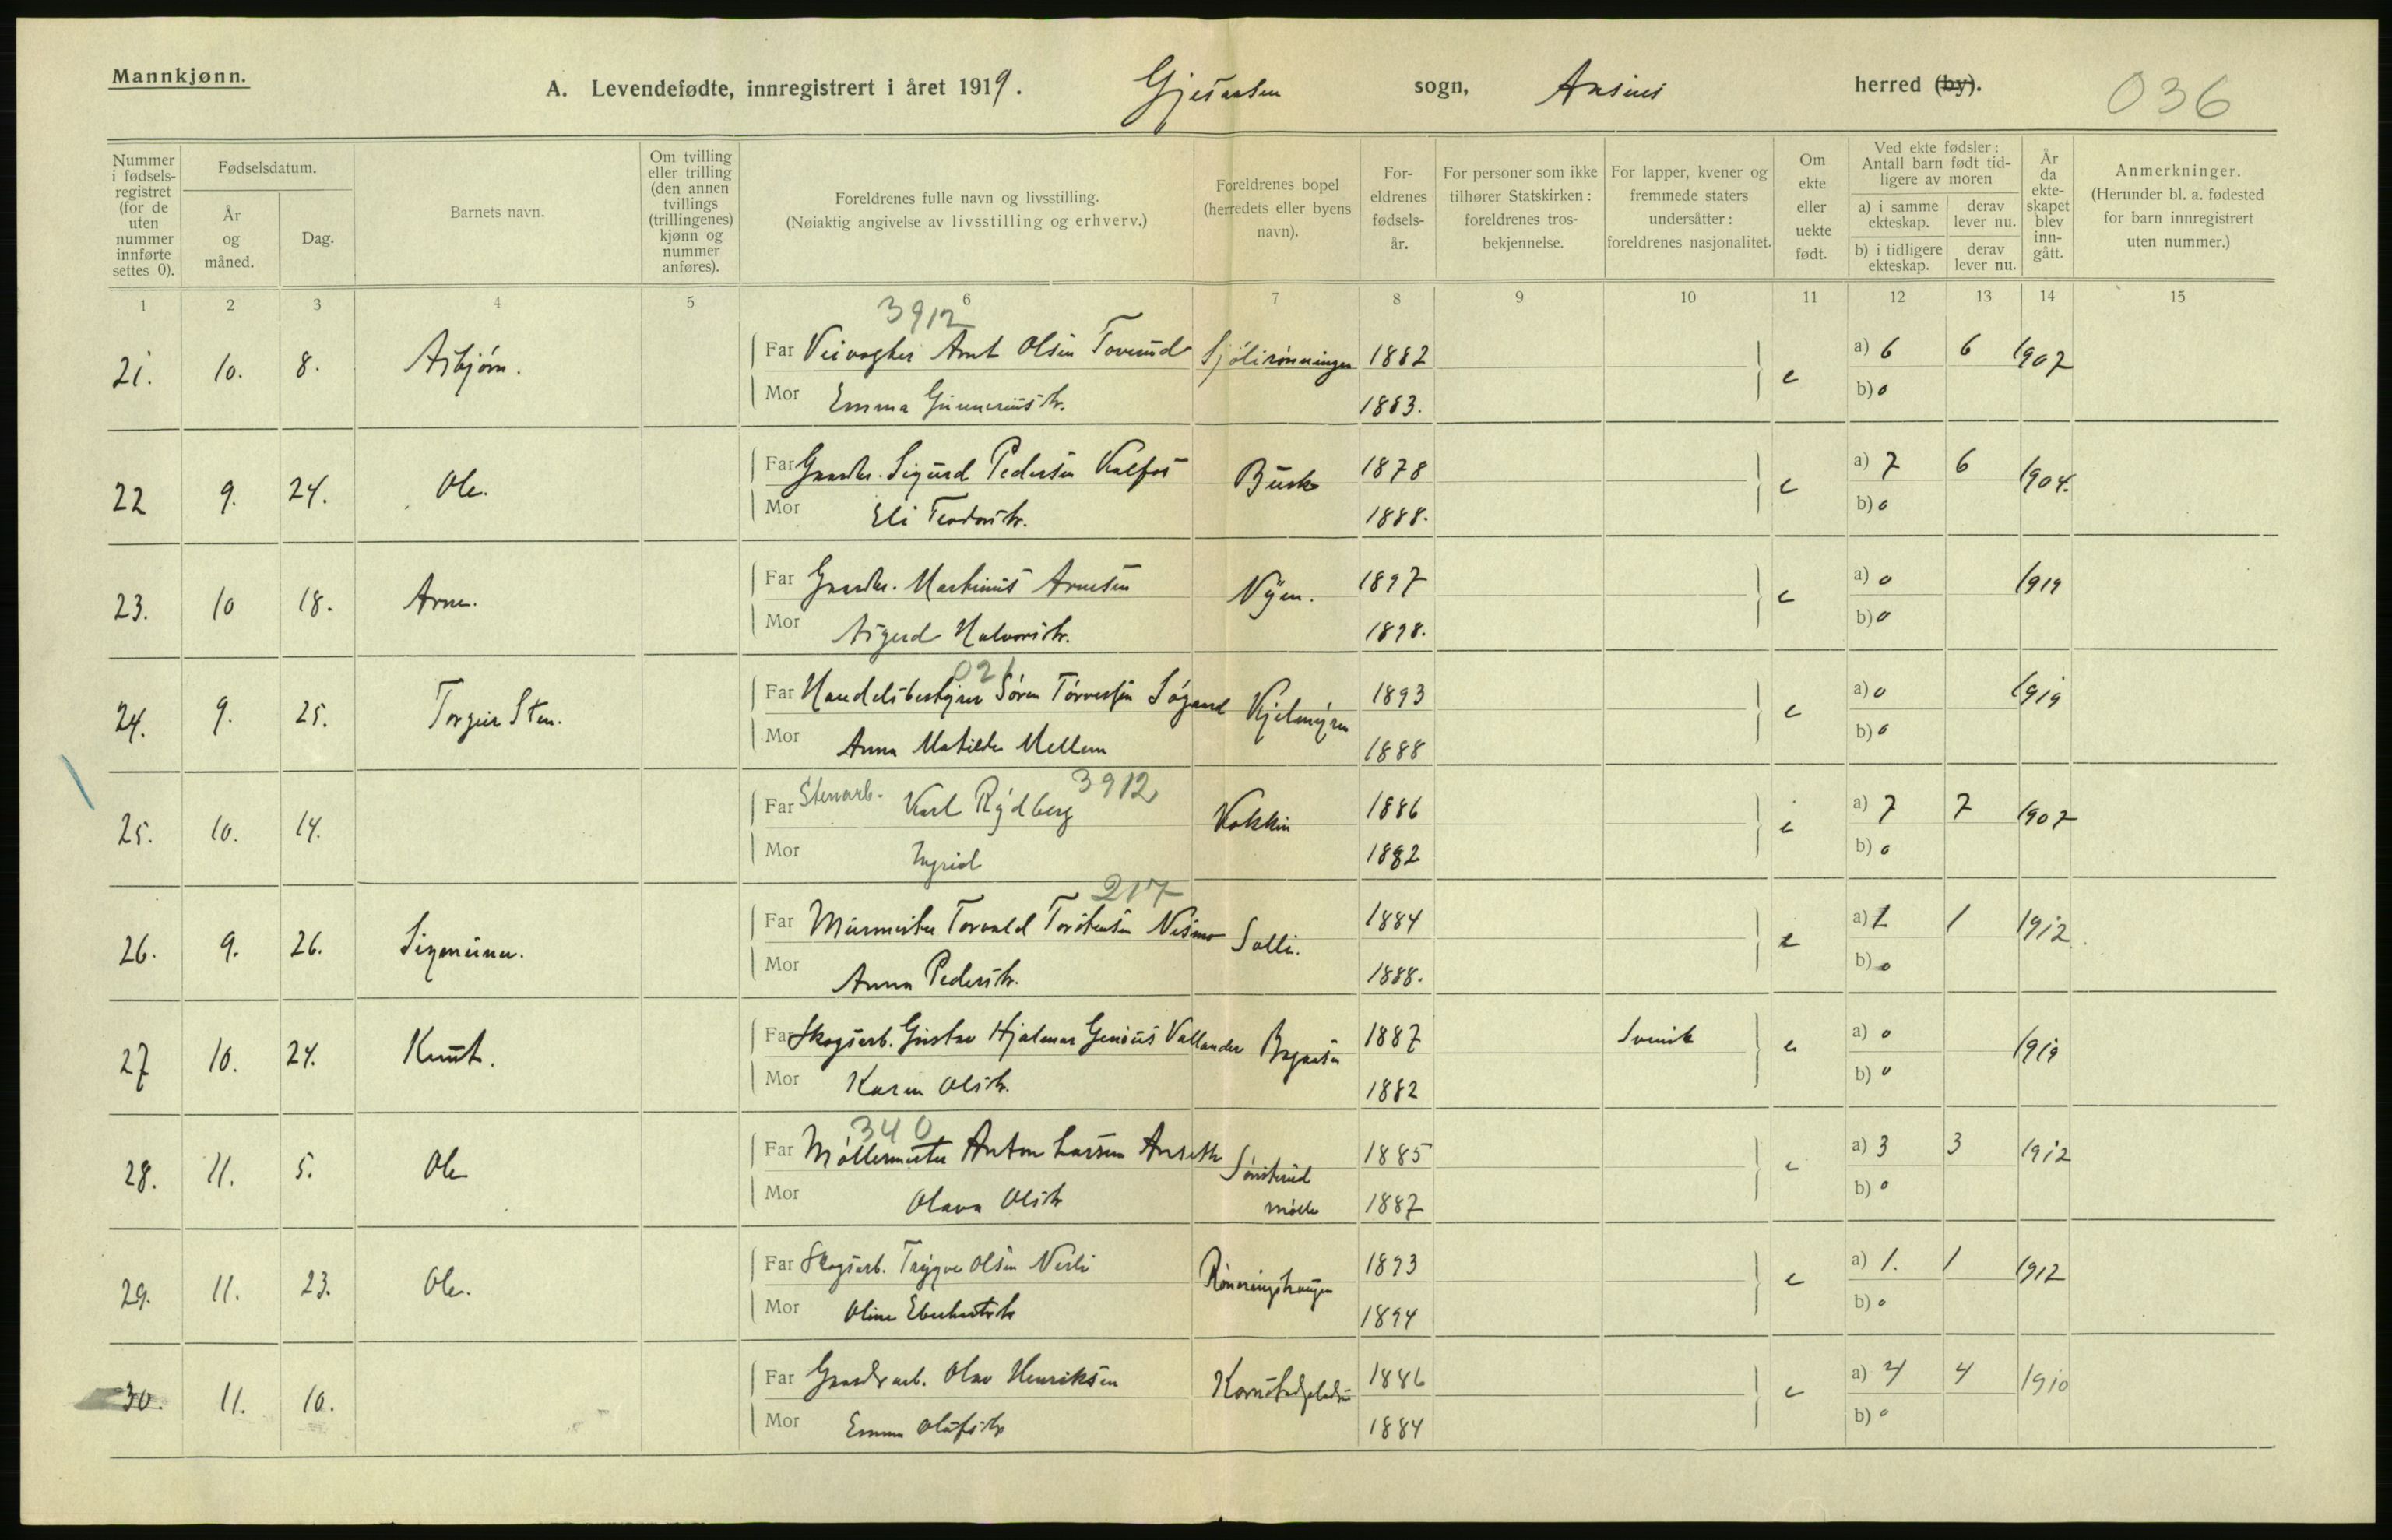 Mannkjønn.
A. Levendefødte, innregistrert i året 1919. Gjesaasen sogn, Aasnes herred (by). 036
Nummer i fødsels-registret (for de uten nummer innførte settes 0).
Fødselsdatum.
År og måned.
Dag.
Barnets navn.
Om tvilling eller trilling (den annen tvillings (trillingenes) kjønn og nummer anføres).
Foreldrenes fulle navn og livsstilling.
(Nøiaktig angivelse av livsstilling og erhverv.)
Foreldrenes bopel (herredets eller byens navn).
For-eldrenes fødsels-år.
For personer som ikke tilhører Statskirken: foreldrenes tros-bekjennelse.
For lapper, kvener og fremmede staters undersåtter: foreldrenes nasjonalitet.
Om ekte eller uekte født.
Ved ekte fødsler: Antall barn født tid-ligere av moren
a) i samme ekteskap.
derav lever nu.
b) i tidligere ekteskap.
derav lever nu.
År da ekte-skapet blev inn-gått.
Anmerkninger.
(Herunder bl. a. fødested for barn innregistrert uten nummer.)
1 2 3 4 5 6 7 8 9 10 11 12 13 14 15
3912
21. 10. 8. Asbjørn. Far Veivogter Arnt Olsen Toverud 1882 e a) 6 6 1907
Mor Emma Gunneriusdtr. 1883. b) 0
22 9. 24. Ole. Far Gaardbr. Sigurd Pedersen Kalfos Busk 1878 e a) 7 6 1904.
Mor Eli Teodorsdtr. 1888. b) 0
23. 10 18. Arne. Far Gaardbr. Martinus Arnesen Nyen. 1897 e a) 0 1919
Mor Halvorsdtr. 1898. b) 0
021
24. 9. 25. Torgeir Sten. Far Handelsbestyrer Søren Kjelmyren 1893 e a) 0 1919
Mor Anna Matilde Mellem 1888 b) 0
3912
25. 10. 14. Far Stenarb. Karl Rydberg Kokkin 1886 e a) 7 7 1907
Mor Ingrid 1882 b) 0
217
26. 9. 26. Sigmund. Far Murmester Torvald Torstensen Solli. 1884 e a) 1 1 1912
Mor Anna Pedersdtr. 1888. b) 0
27 10. 24. Knut. Far Skogsarb. Gustav Hjalmar Vallander 1887 Svensk e a) 0 1919
Mor Karen Olsdtr. 1882 b) 0
340
28. 11. 5. Ole Far Møllermester Anton Larsen Aaseth Sønsterud 1885 e a) 3 3 1912
Mor Olava Olsdtr mølle 1887 b) 0
29. 11. 23. Ole. Far Skogsarb. Trygve Olsen Nerli Rønningshaugen 1893 e a) 1. 1 1912
Mor Oline 1894 b) 0
30. 11. 10. Far Gaardsarb. Olav Henriksen 1886 e a) 4 4 1910
Mor Emma Olufsdtr 1884 b) 0